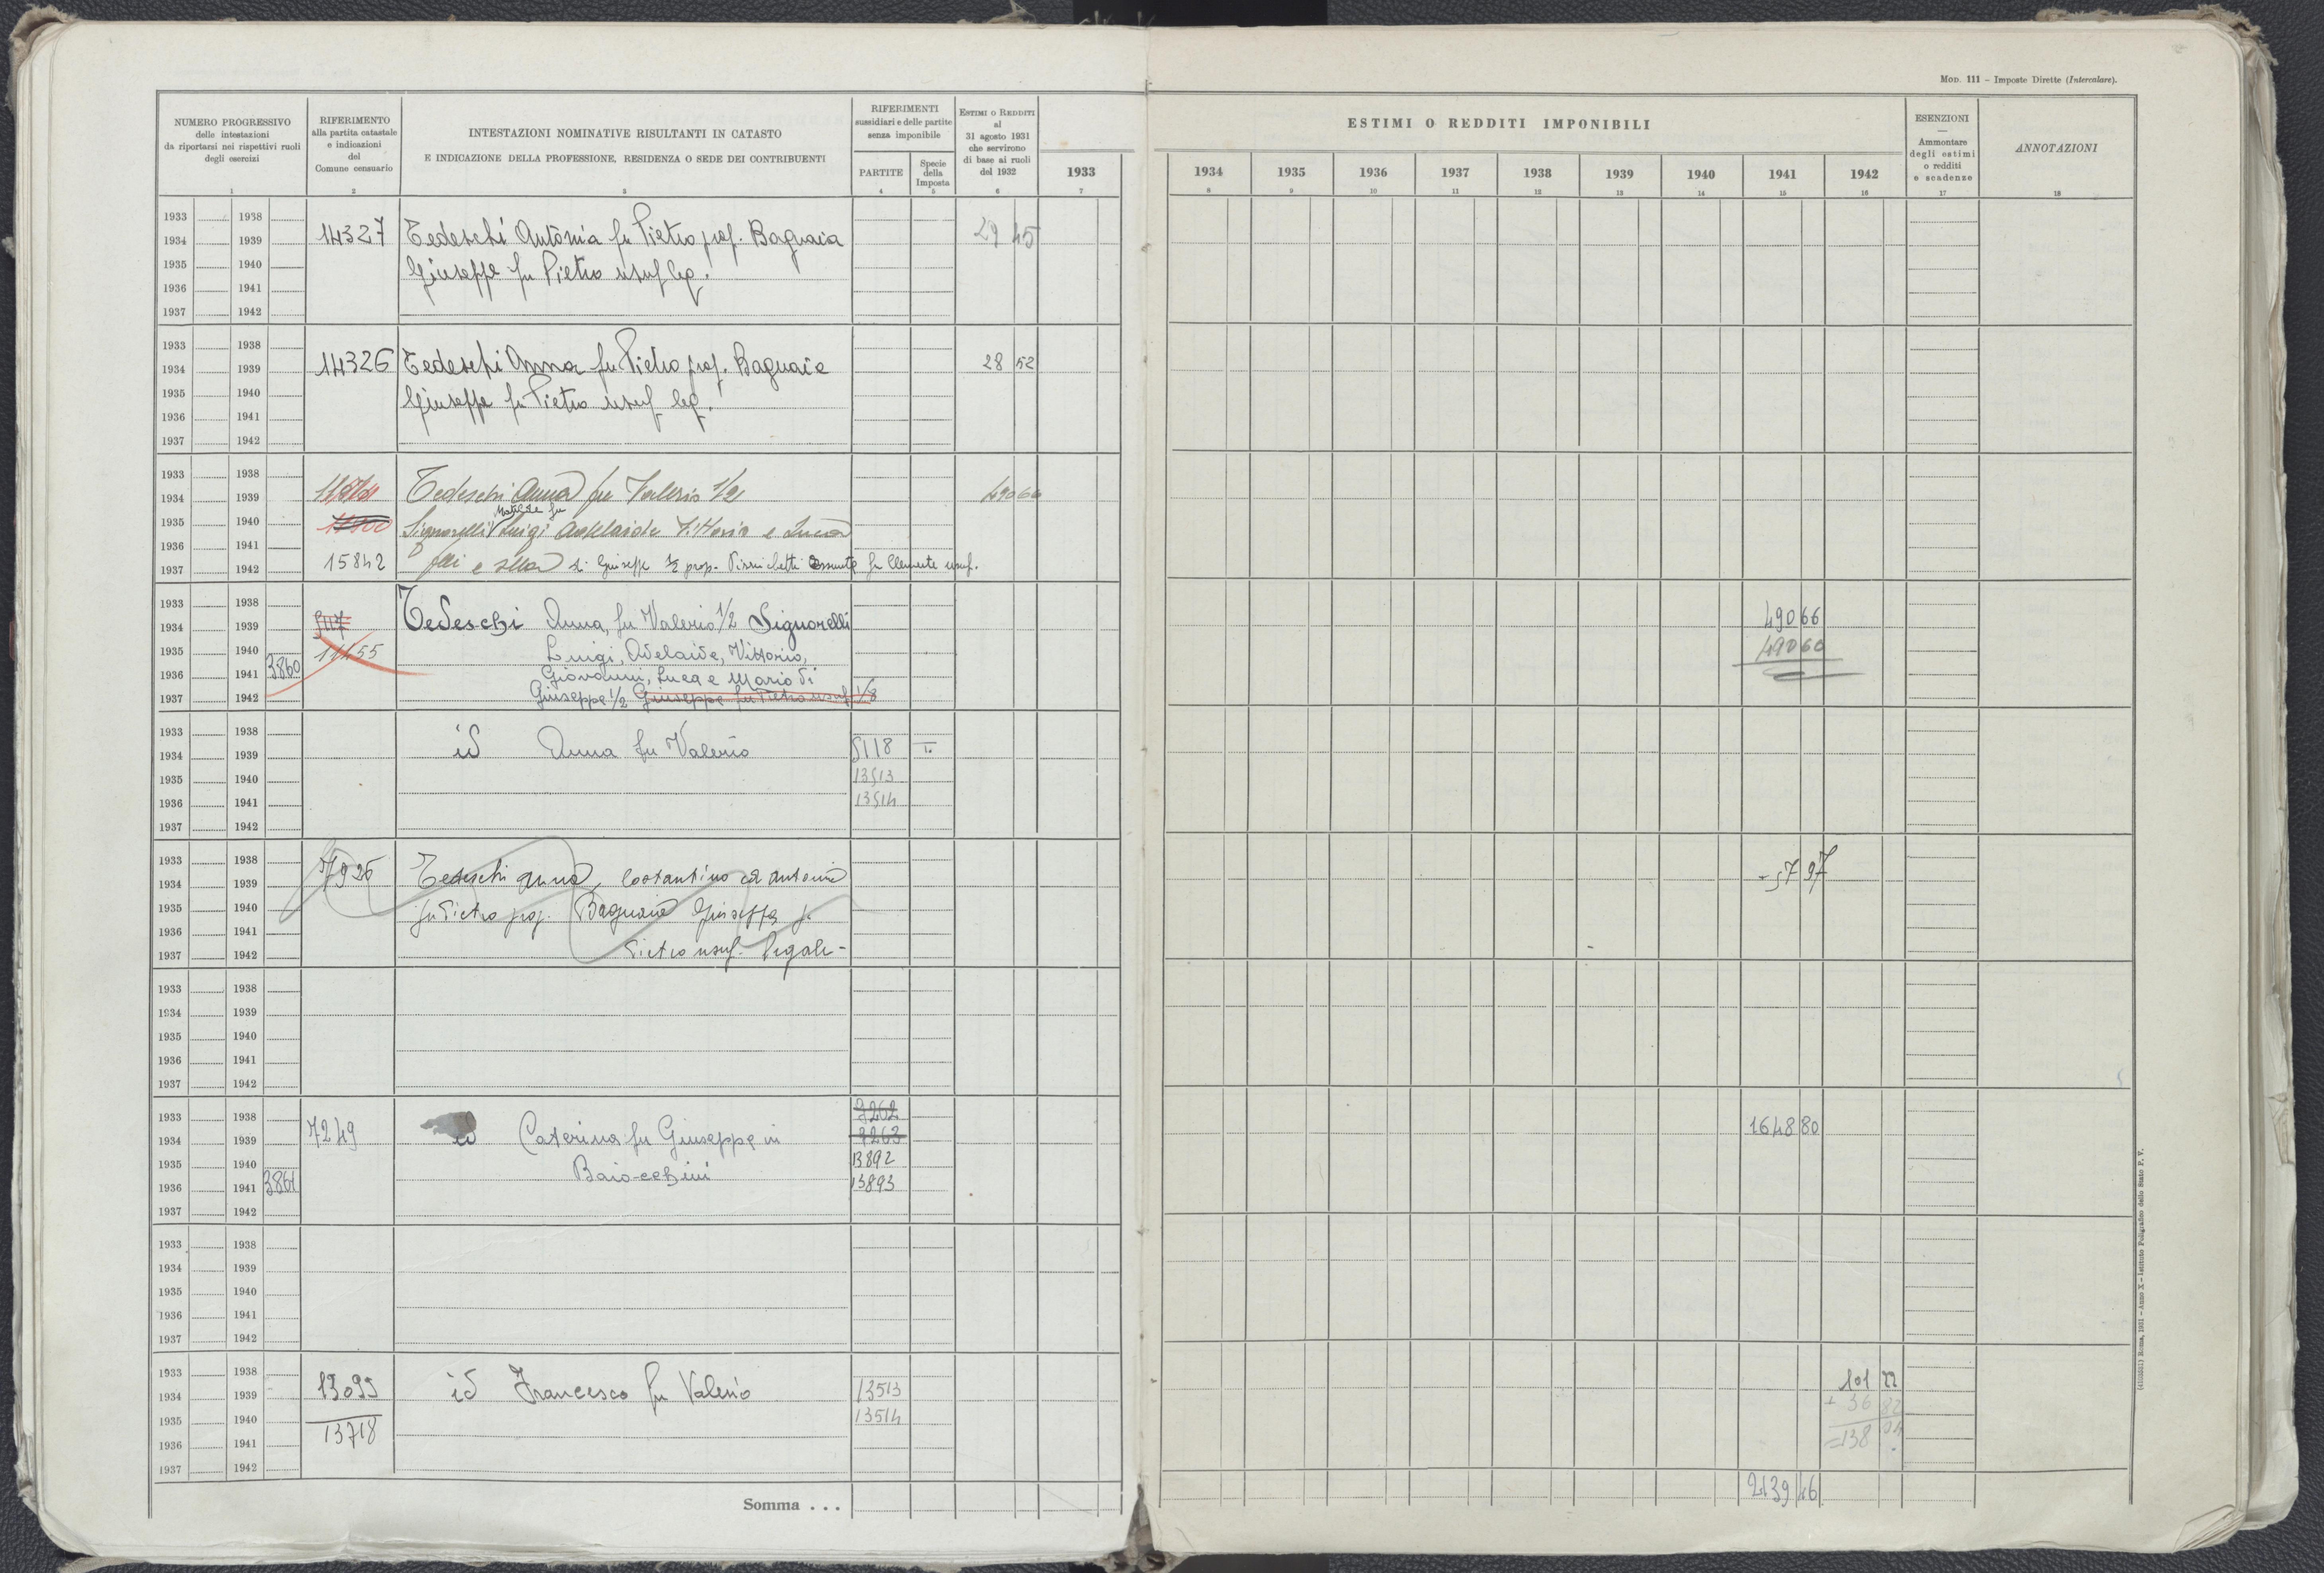 Mod. 111 – Imposte Dirette (Intercalare).
NUMERO PROGRESSIVO
delle intestazioni
da riportarsi nei rispettivi ruoli
degli esercizi
1
RIFERIMENTO
alla partita catastale
e indicazioni
del
Comune censuario
2
INTESTAZIONI NOMINATIVE RISULTANTI IN CATASTO
E INDICAZIONE DELLA PROFESSIONE, RESIDENZA O SEDE DEI CONTRIBUENTI
3
RIFERIMENTI
sussidiari e delle partite
senza imponibile
PARTITE
4
Specie
della
Imposta
5
Estimi o Redditi
al
31 agosto 1931
che servirono
di base ai ruoli
del 1932
6
1933
7
ESTIMI O REDDITI IMPONIBILI
1934 1935 1936 1937 1938 1939 1940 1941 1942
8 9 10 11 12 13 14 15 16
ESENZIONI
—
Ammontare
degli estimi
o redditi
e scadenze
17
ANNOTAZIONI
18
1933 1938
1934 1939 14327 Tedeschi Antonia fu Pietro prop. Bagnaia 29 45
1935 1940 Giuseppe fu Pietro usuf leg.
1936 1941
1937 1942
1933 1938
1934 1939 14326 Tedeschi Anna fu Pietro prop. Bagnaia 28 52
1935 1940 Giuseppe fu Pietro usuf leg.
1936 1941
1937 1942
1933 1938
1934 1939 Tedeschi Anna fu Valerio 1/2 490 66
Matilde fu
1935 1940 Signorelli Luigi Adelaide Vittorio e Luca
1936 1941
1937 1942 15842 flli e slla di Giuseppe 1/2 prop. Assunta fu Clemente usuf.
1933 1938
1934 1939 Tedeschi Anna, fu Valerio 1/2 Signorelli 490 66
1935 1940 11455 Luigi, Adelaide, Vittorio, 490 60
1936 1941 3860 Giovanni, Luca e Mario di
1937 1942 Giuseppe 1/2 Giuseppe fu Pietro usuf 1/8
1933 1938
1934 1939 id Anna fu Valerio 5118 T.
1935 1940 13513
1936 1941 13514
1937 1942
1933 1938
1934 1939 7926 Tedeschi Anna, Costantino ed Antonia - 57 97
1935 1940 fu Pietro prop. Bagnaia Giuseppe fu
1936 1941
1937 1942 Pietro usuf. legale -
1933 1938
1934 1939
1935 1940
1936 1941
1937 1942
1933 1938 7262
1934 1939 7249 id Caterina fu Giuseppe in 7263 1648 80
1935 1940 13892
1936 1941 3861 Baiocchini 13893
1937 1942
1933 1938
1934 1939
1935 1940
1936 1941
1937 1942
1933 1938
1934 1939 13099 id Francesco fu Valerio 13513 101 22
1935 1940 13718 13514 + 36 82
1936 1941 = 138 04
1937 1942
Somma . . . 2139 46
Roma, 1931 – Anno X – Istituto Poligrafico dello Stato P. V.